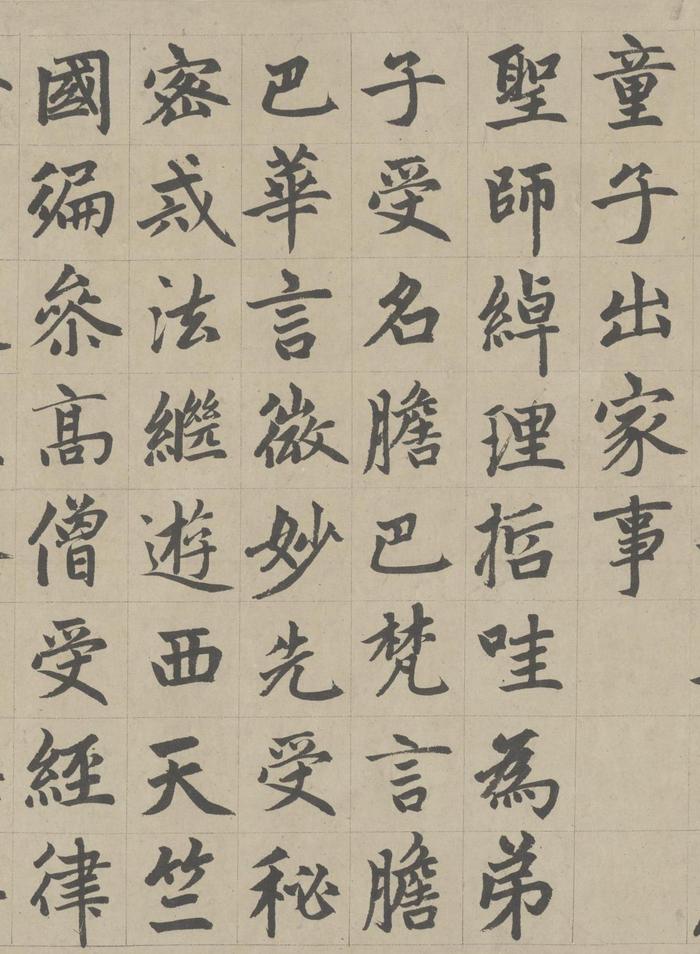 童子出家事
聖師綽理哲哇為弟
子受名膽巴梵言膽
巴華言微妙先受秘
密戒法繼遊西天竺
國徧參高僧受經律